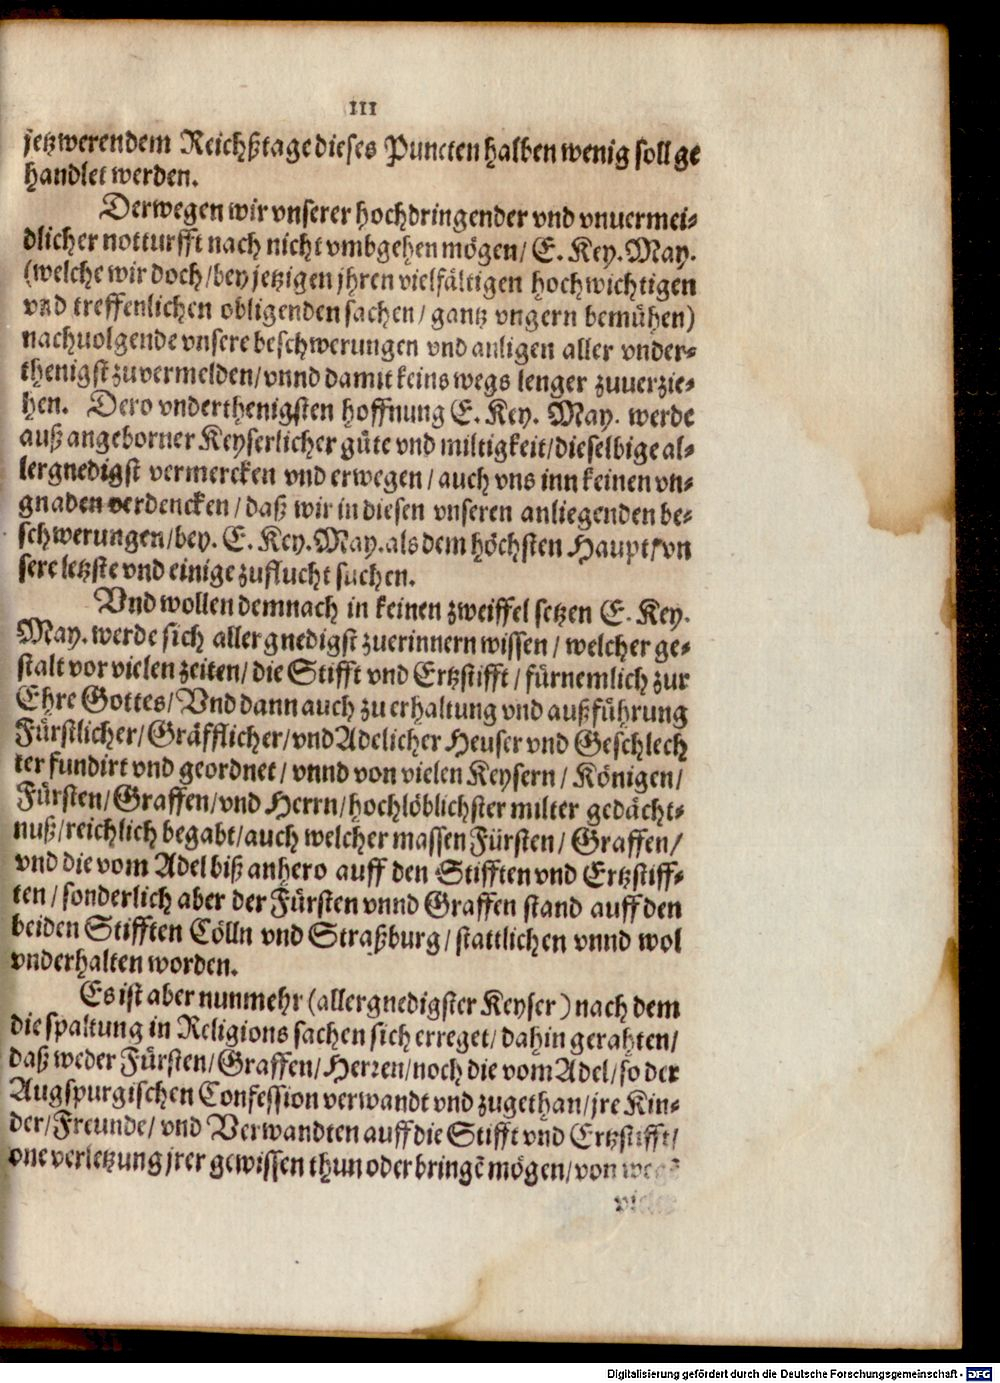 III
jetzwerendem Reichßtage dieses Puncten halben wenig soll ge
handlet werden.
Derwegen wir vnserer hochdringender vnd vnuermei-
dlicher notturfft nach nicht vmbgehen mögen/ E. Key. May.
(welche wir doch/ bey jetzigen jhren vielfältigen hochwichtigen
vnd treffenlichen obligenden sachen/ gantz vngern bemühen)
nachuolgende vnsere beschwerungen vnd anligen aller vnder-
thenigst zuvermelden/ vnnd damit keins wegs lenger zuuerzie-
hen. Dero vnderthenigsten hoffnung E. Key. May. werde
auß angeborner Keyserlicher güte vnd miltigkeit/ dieselbige al-
lergnedigst vermercken vnd erwegen/ auch vns inn keinen vn-
gnaden verdencken/ daß wir in diesen vnseren anliegenden be-
schwerungen/ bey. E. Key. May. als dem höchsten Haupt/ vn
sere letzste vnd einige zuflucht suchen.
Vnd wollen demnach in keinen zweiffel setzen E. Key.
May. werde sich allergnedigst zuerinnern wissen/ welcher ge-
stalt vor vielen zeiten/ die Stifft vnd Ertzstifft/ fürnemlich zur
Ehre Gottes/ Vnd dann auch zu erhaltung vnd außführung
Fürstlicher/ Gräfflicher/ vnd Adelicher Heuser vnd Geschlech
ter fundirt vnd geordnet/ vnnd von vielen Keysern/ Königen/
Fürsten/ Graffen/ vnd Herrn/ hochlöblichster milter gedächt-
nuß/ reichlich begabt/ auch welcher massen Fürsten/ Graffen/
vnd die vom Adel biß anhero auff den Stifften vnd Ertzstiff-
ten/ sonderlich aber der Fürsten vnnd Graffen stand auff den
beiden Stifften Cölln vnd Straßburg/ stattlichen vnnd wol
vnderhalten worden.
Es ist aber nunmehr (allergnedigster Keyser) nach dem
die spaltung in Religions sachen sich erreget/ dahin gerahten/
daß weder Fürsten/ Graffen/ Herren/ noch die vom Adel/ so der
Augspurgischen Confession verwandt vnd zugethan/ jre Kin-
der/ Freunde/ vnd Verwandten auff die Stifft vnd Ertzstifft/
one verletzung jrer gewissen thun oder bringē mögen/ von wegē
Digitalisierung gefördert durch die Deutsche Forschungsgemeinschaft - DFG